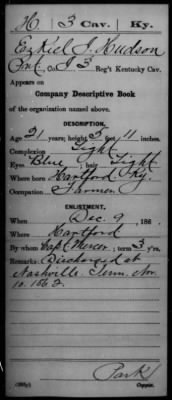 H | 3 Cav. | Ky.
Ezkiel J. Hudson
Pvt., Co. I 3 Reg't Kentucky Cav.
Appears on
Company Descriptive Book
of the organization named above.
DESCRIPTION.
Age 21 years; height 5 feet 11 inches.
Complexion Light
Eyes Blue; hair Light
Where born Hartford Ky.
Occupation Farmer
ENLISTMENT.
When Dec. 9, 186 .
Where Hartford
By whom Capt Mercer; term 3 y'rs.
Remarks: Discharged at
Nashville Tenn. Nov.
10. 1862.
Park
Copyist.